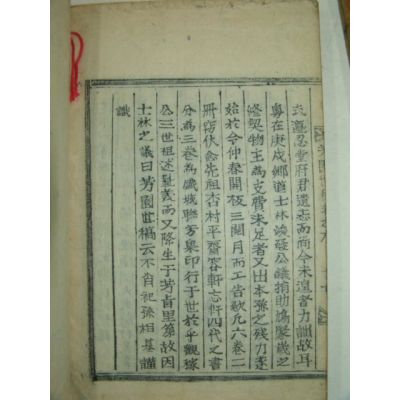 氏遯忍堂府君遺志而尚今未遑者力詘故耳
粤在庚戌鄉道士林峻發公議捐助鳩聚歲之
修契物主為支費未足者又出本孫之殘力遂
始於今仲春開板三閱月而工告敦凡六卷二
冊竊伏念先祖杏村平齋客軒忘軒四代之書
分為三卷為織城聯芳集印行于世於乎觀稼
公三世祖述義而又降生于芳肯里第故因
士林之議曰芳園世稿云不肖祀孫相基謹
識